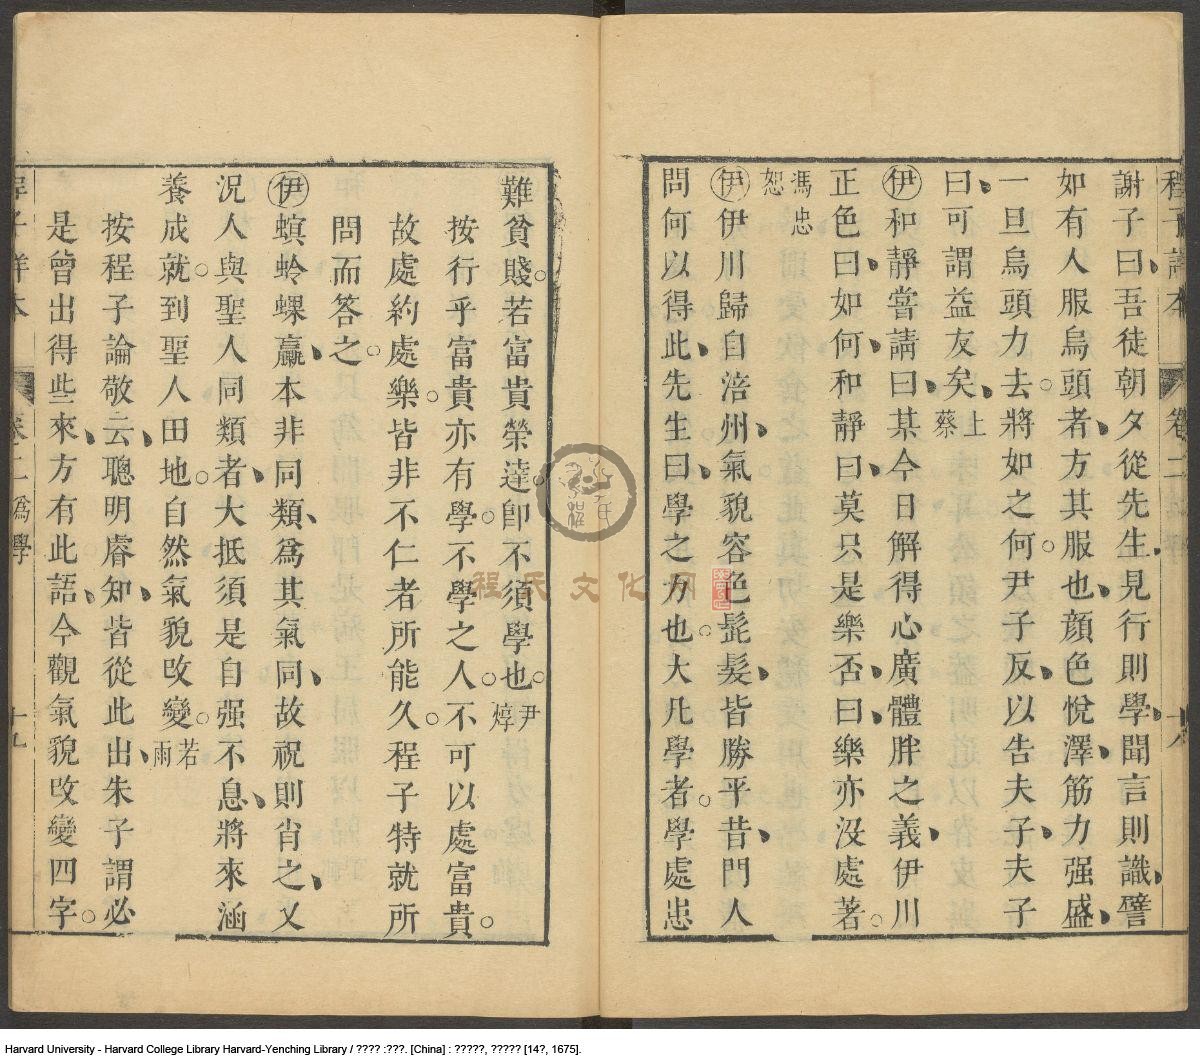 謝子曰吾徒朝夕從先生見行則學聞言則識譬
如有人服烏頭者方其服也顔色悅澤筋力强盛
一旦烏頭力去將如之何尹子反以告夫子夫子
曰可謂益友矣上蔡
伊和靜嘗請曰某今日解得心廣體胖之義伊川
正色曰如何和靜曰莫只是樂否曰樂亦沒處著
馮忠恕
伊伊川歸自涪州氣貌容色髭髮皆勝平昔門人
問何以得此先生曰學之力也大凡學者學處患
難貧賤若富貴榮達卽不須學也尹焞
按行乎富貴亦有學不學之人不可以處富貴
故處約處樂皆非不仁者所能久程子特就所
問而答之
伊螟蛉蜾蠃本非同類爲其氣同故祝則肖之又
況人與聖人同類者大抵須是自强不息將來涵
養成就到聖人田地自然氣貌改變若雨
按程子論敬云聰明睿知皆從此出朱子謂必
是曾出得些來方有此語今觀氣貌改變四字
卷二 爲學
十九
程氏文化网
Harvard University - Harvard College Library Harvard-Yenching Library / ???? :???. [China] : ?????, ????? [14?, 1675].